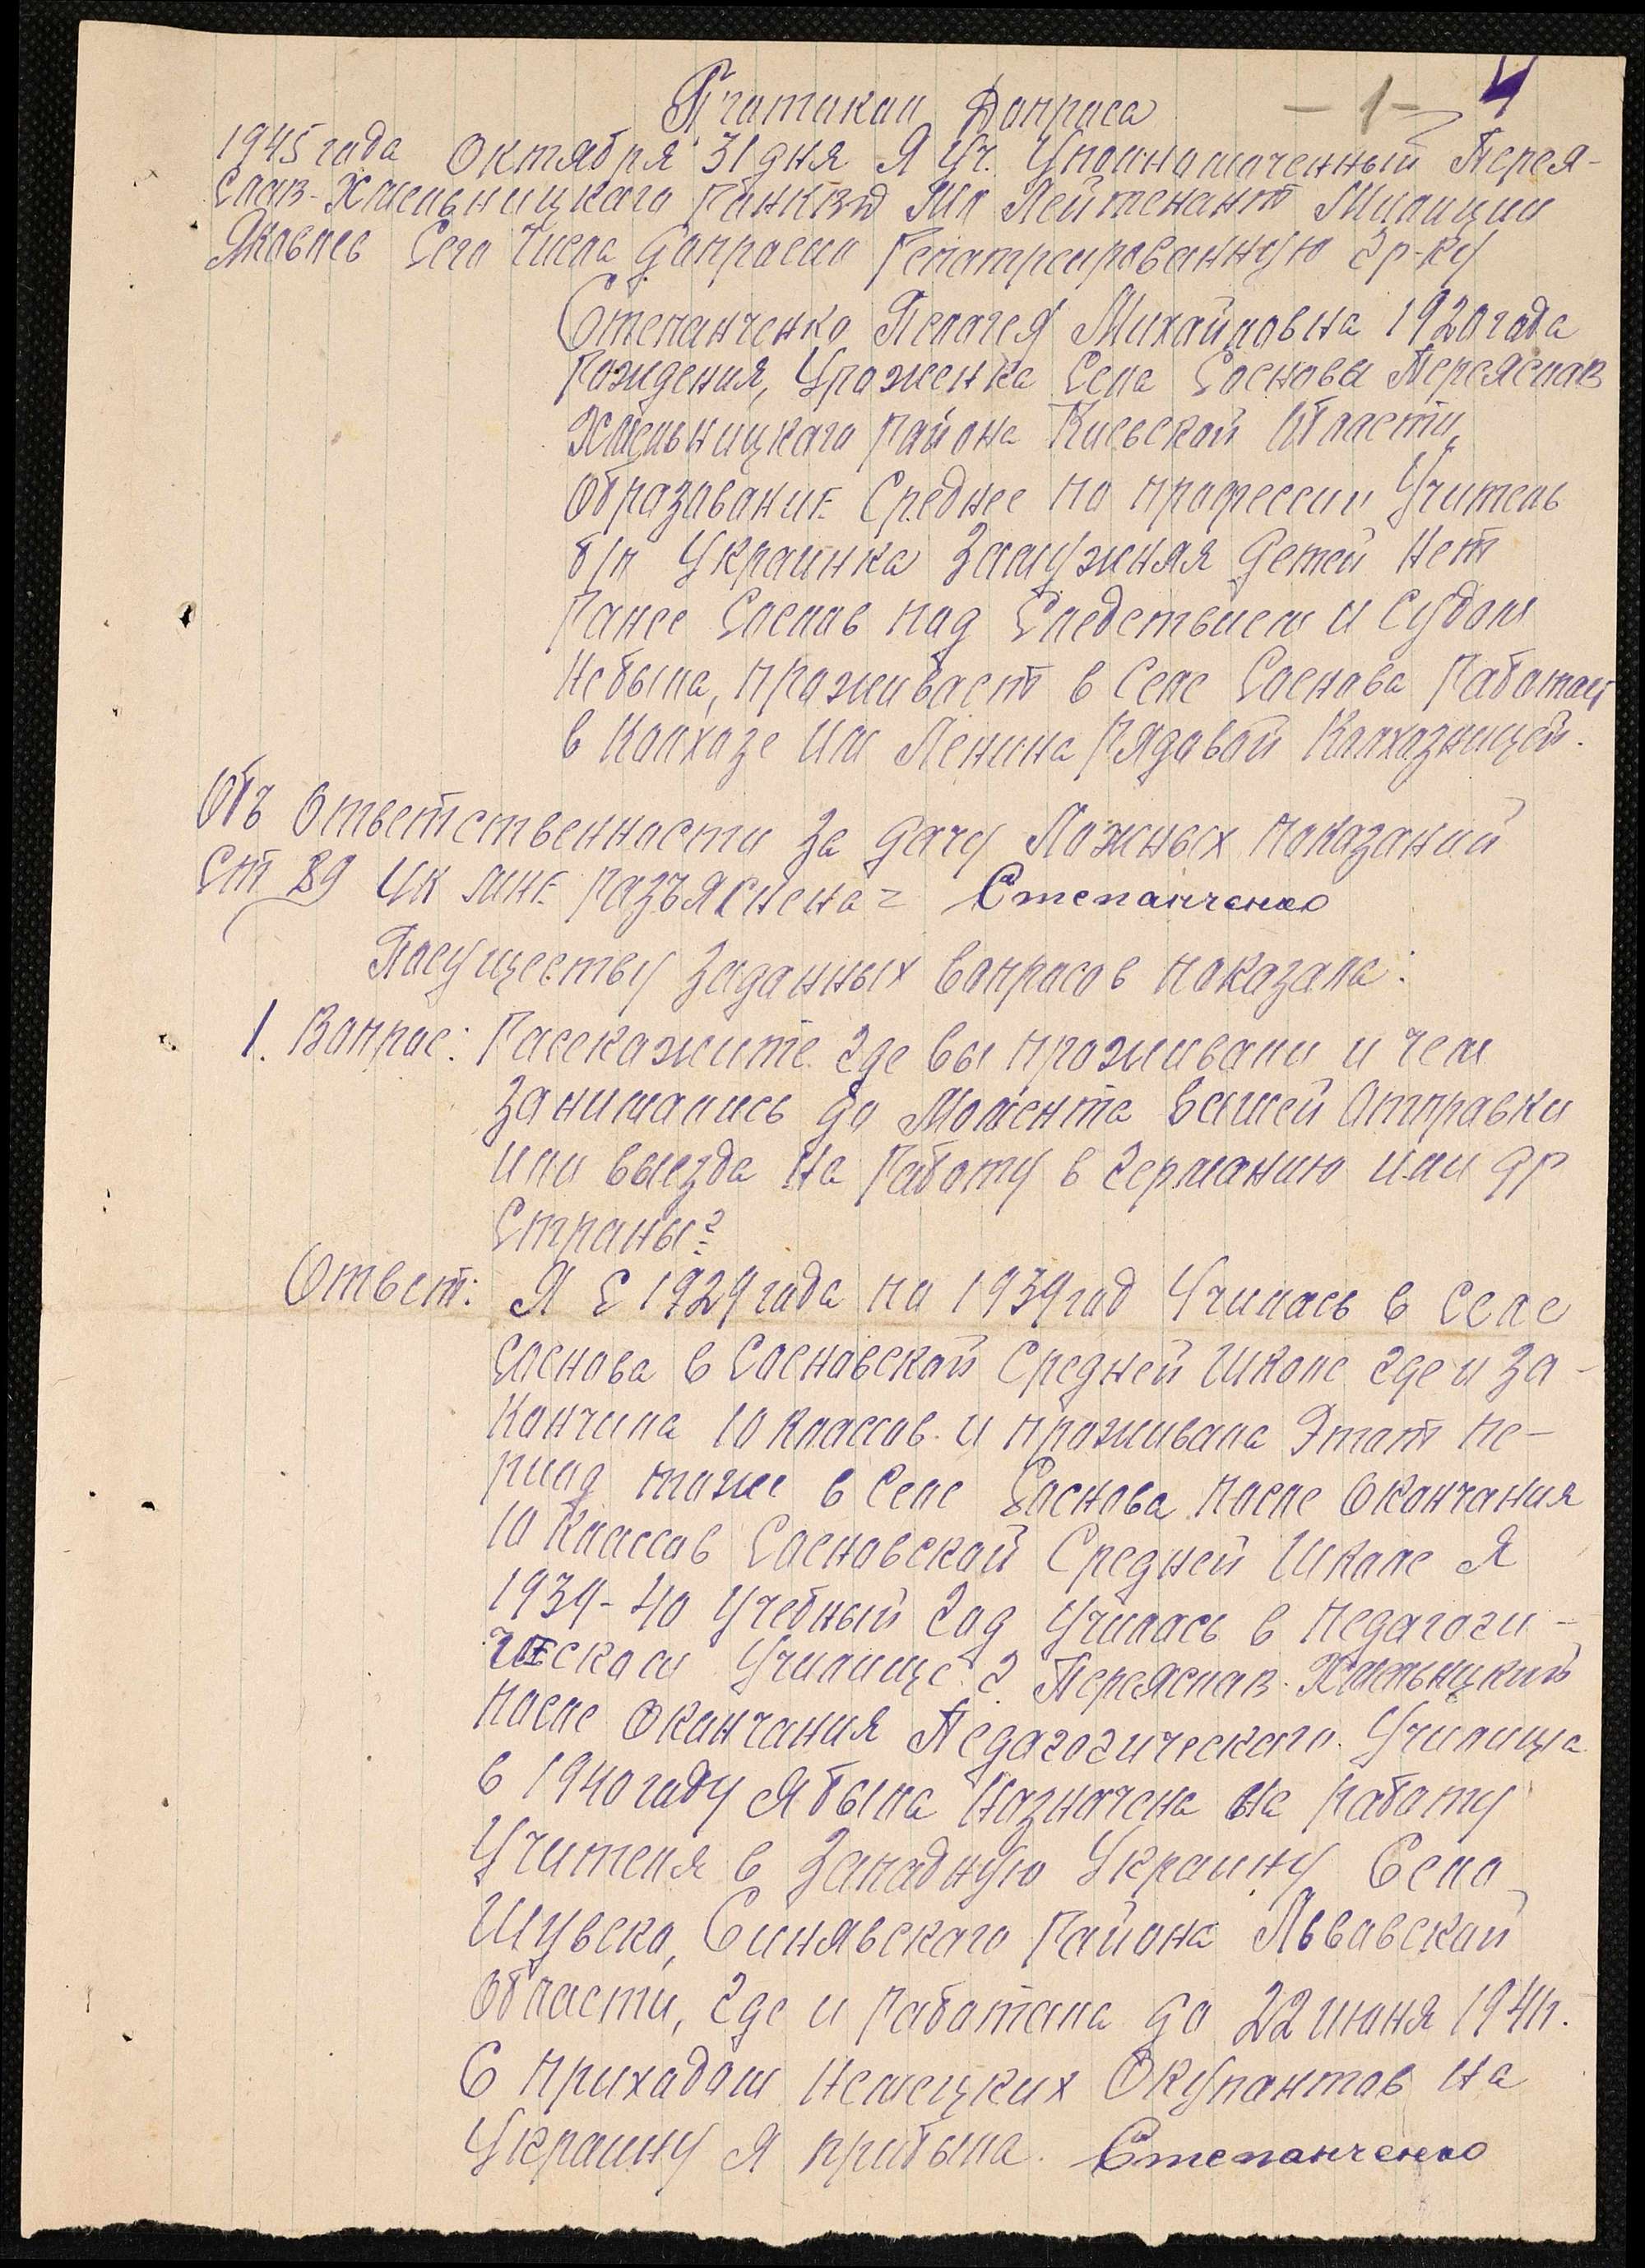 Пратакол Допроса
- 1 - 4
1945 года Октября 31 дня Я Уч. Уполномоченный Перея-
слав-Хмельницкаго РайНКВД Мл Лейтенант Милиции
Яковлев Сего Числа допросил Репатреированную гр-ку
Степанченко Пелагея Михайловна 1920 года
Рождения, Уроженка Села Соснова Переяслав
Хмельницкаго Района Киевской Области,
Образование Среднее по профессии Учитель
б/п Украинка Замужняя детей Нет
Ранее Сослов под Следствием и Судом
Небыла, проживает в Селе Соснова Работает
в Колхозе Им Ленина Рядовой Колхозницей.
Объ Ответственности За дачу Ложных показаний
Ст 89 УК мне Разъяснена = Степанченко
Посуществу Заданных Вопросов показала:
1. Вопрос: Расскажите где Вы проживали и чем
Занимались до Момента Вашей Отправки
или выезда На Работу в Германию или др
Страны?
Ответ: Я С 1929 года по 1939 год Училась в Селе
Соснова в Сосновской Средней Школе где и за-
Кончила 10 классов и проживала Этот пе-
риод тоже в Селе Соснова после Окончания
10 Классов Сосновской Средней Школе Я
1939-40 Учебный Год Училась в педагоги-
ческом Училище г Переяслав-Хмельницкий
после Окончания Педагогическаго Училища
в 1940 году Я была Назначена На Работу
Учителя в Западную Украину Село
Шувско, Синявскаго Района Львовской
Области, где и Работала до 22 июня 1941г.
С приходом Немецких Окупантов На
Украину Я прибыла. Степанченко